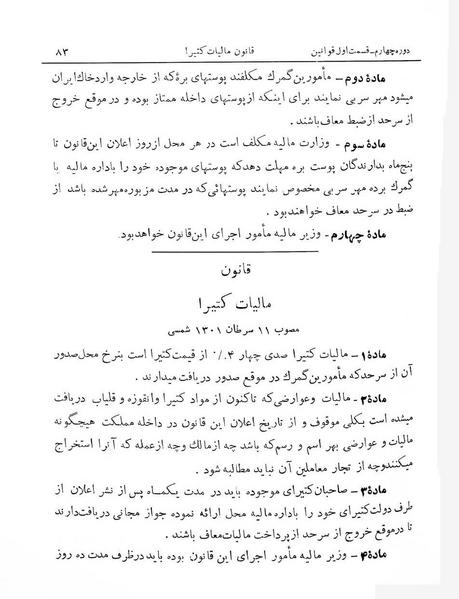 دوره چهارم-قسمت اول قوانین قانون مالیات کتیرا ۸۳
مادهٔ دوم - مأمورین گمرک مکلفند پوستهای برهٔ که از خارجه وارد خاک ایران
میشود مهر سربی نمایند برای اینکه از پوستهای داخله ممتاز بوده و در موقع خروج
از سرحد از ضبط معاف باشند.
مادهٔ سوم - وزارت مالیه مکلف است در هر محل از روز اعلان این قانون تا
پنج ماه بدارندگان پوست بره مهلت دهد که پوستهای موجوده خود را باداره مالیه یا
گمرک برده مهر سربی مخصوص نمایند پوستهائی که در مدت مزبوره مهر شده باشد از
ضبط در سرحد معاف خواهند بود.
مادهٔ چهارم - وزیر مالیه مأمور اجرای این قانون خواهد بود.
قانون
مالیات کتیرا
مصوب ۱۱ سرطان ۱۳۰۱ شمسی
مادهٔ ۱ - مالیات کتیرا صدی چهار ۴٪ از قیمت کتیرا است بنرخ محل صدور
آن از سرحد که مأمورین گمرک در موقع صدور دریافت میدارند.
مادهٔ ۲ - مالیات وعوارضی که تاکنون از مواد کتیرا وانقوزه و قلیاب دریافت
میشده است بکلی موقوف و از تاریخ اعلان این قانون در داخله مملکت هیچگونه
مالیات و عوارضی بهر اسم و رسم که باشد چه از مالک وچه از عمله که آنرا استخراج
میکنند وچه از تجار معاملین آن نباید مطالبه شود.
مادهٔ ۳ - صاحبان کتیرای موجوده باید در مدت یکماه پس از نشر اعلان از
طرف دولت کتیرای خود را باداره مالیه محل ارائه نموده جواز مجانی دریافت دارند
تا در موقع خروج از سرحد از پرداخت مالیات معاف باشند.
مادهٔ ۴ - وزیر مالیه مأمور اجرای این قانون بوده باید در ظرف مدت ده روز